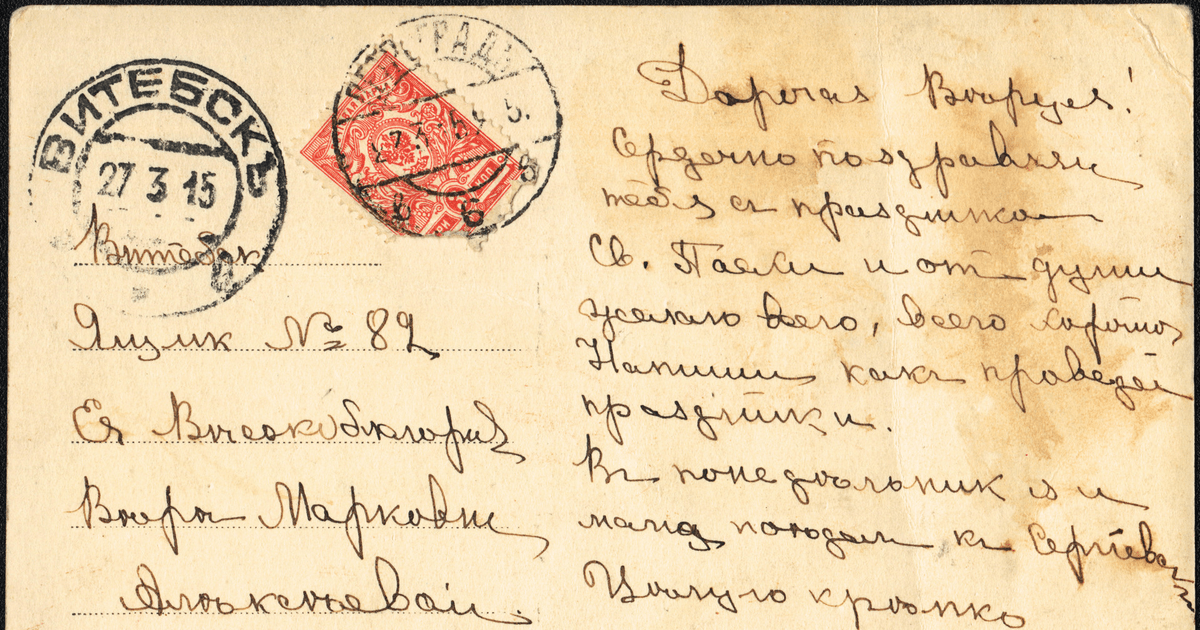 ВИТЕБСКЪ
27 3 15
ПЕТРОГРАДЪ
Витебск
Ящик № 82
Ея Высокоблагород
Вѣрѣ Марковнѣ
Алѣксѣевой.
Дорогая Вѣруся!
Сердечно поздравляю
тебя съ праздником
Св. Пасхи и от души
желаю всего, всего хорошо
Напиши какъ проведеш
праздники.
Въ понедѣльник я и
мама поѣдем къ Сергѣев
Цѣлую крѣпко